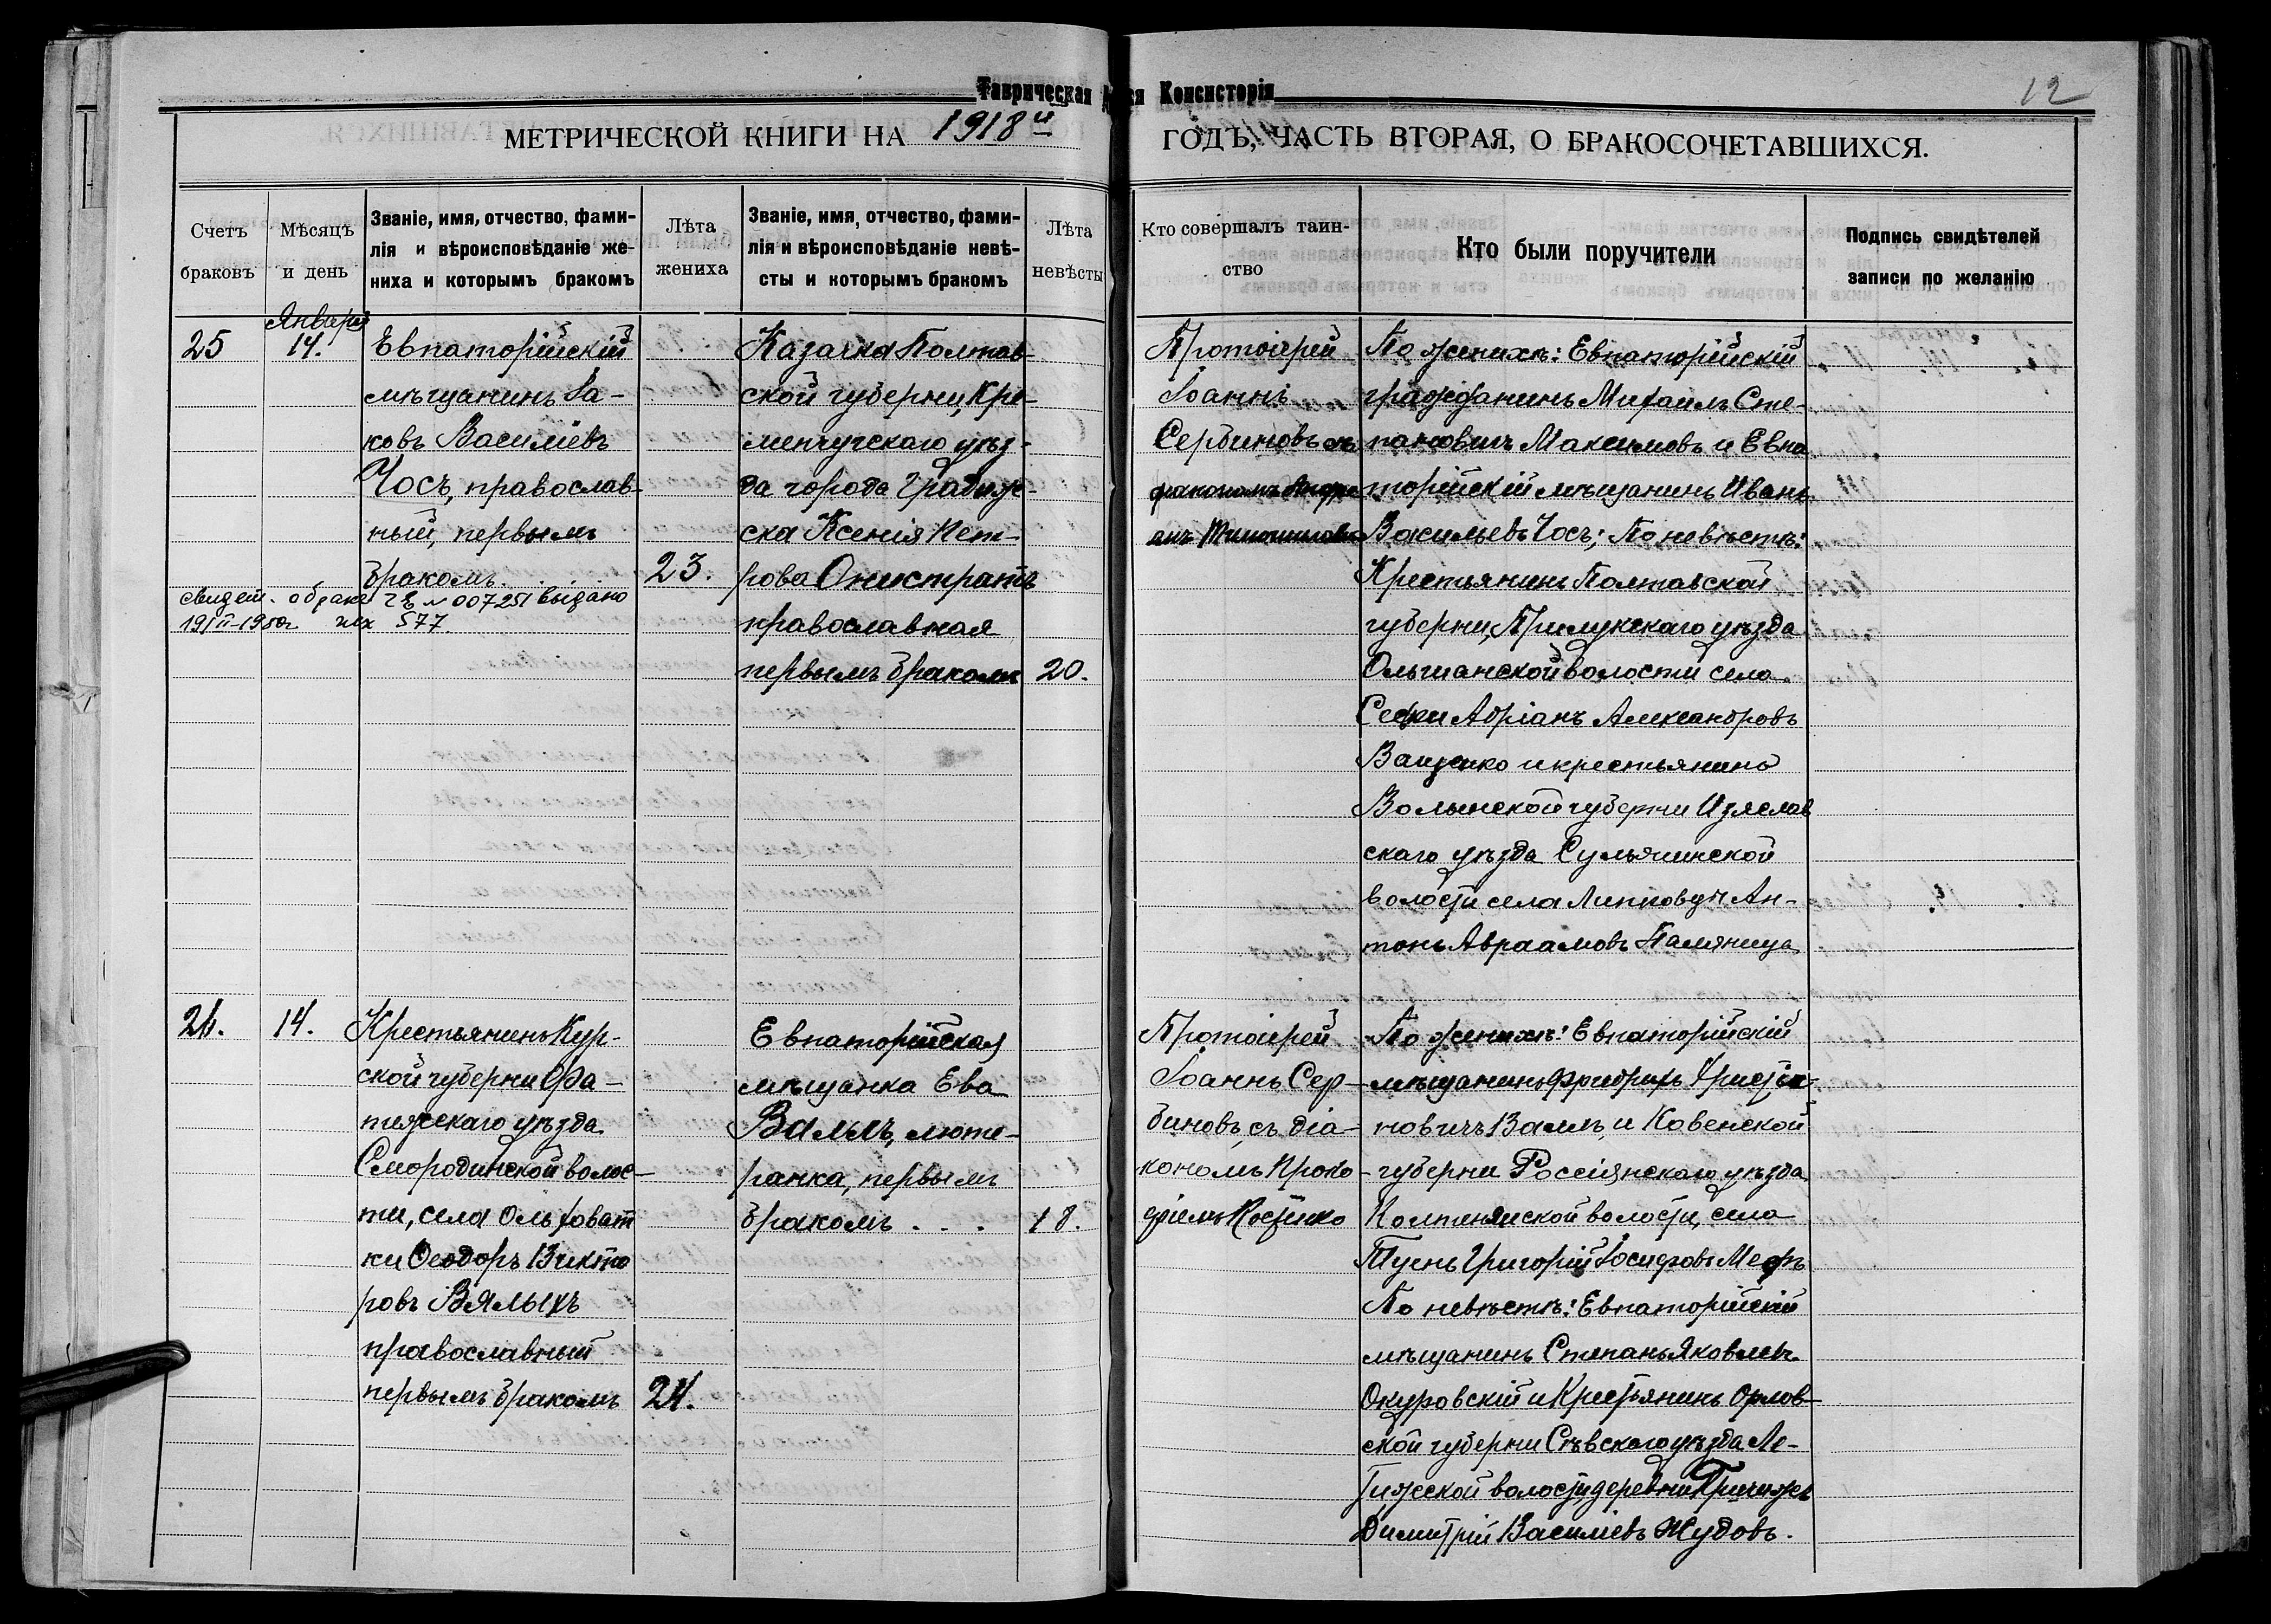 Таврическая
Консисторія
12
МЕТРИЧЕСКОЙ КНИГИ НА 1918й
ГОДЪ, ЧАСТЬ ВТОРАЯ, О БРАКОСОЧЕТАВШИХСЯ.
Счетъ браковъ
Мѣсяцъ и день
Званіе, имя, отчество, фами-
лія и вѣроисповѣданіе же-
ниха и которымъ бракомъ
Лѣта жениха
Званіе, имя, отчество, фами-
лія и вѣроисповѣданіе невѣ-
сты и которымъ бракомъ
Лѣта невѣсты
Кто совершалъ таин-
ство
Кто были поручители
Подпись свидѣтелей
записи по желанію
25
Января
14.
Евпаторійскій
мѣщанинъ Іа-
ковъ Василіевъ
Чосъ, православ-
ный, первымъ
бракомъ.
23.
свидет. о браке ЧБ № 007251 выдано
Казачка Полтав-
ской губерніи, Кре-
менчугскаго уѣз-
да города Градиж-
ска Ксенія Пет-
рова Онистратъ
православная
первымъ бракомъ
20.
Протоіерей
Іоаннъ
Сербиновъ съ
діакономъ
По женихѣ: Евпаторійскій
гражданинъ Михаилъ Сте-
пановичъ Максимовъ и Евпа
торійскій мѣщанинъ Иванъ
Васильевъ Чосъ; По невѣстѣ:
Крестьянинъ Полтавской
губерніи, Прилукскаго уѣзда
Ольшанской волости села
Адріанъ Александровъ
Ващенко и крестьянинъ
Волынской губерніи Изяслав
скаго уѣзда Сульжинской
волости села Ан-
тонъ Авраамовъ Паляница
26.
14.
Крестьянинъ Кур-
ской губерніи Фа-
тежскаго уѣзда
Смородинской волос-
ти, села Ольховат
ки Ѳеодоръ Викто
ровъ Вялыхъ
православный
первымъ бракомъ
24.
Евпаторійская
мѣщанка Ева
Валлъ, люте-
ранка, первымъ
бракомъ . . .
18.
Протоіерей
Іоаннъ Сер-
биновъ, съ діа-
кономъ Проко
фіемъ Костенко
По женихѣ: Евпаторійскій
мѣщанинъ Фридрихъ Христіа-
новичъ Валлъ, и Ковенской
губерніи Россіянскаго уѣзда
волости, села
Григорій Іосифовъ
По невѣстѣ: Евпаторійскій
мѣщанинъ Степанъ Яковлевъ
Окуровскій и Крестьянинъ Орлов-
ской губерніи Сѣвскаго уѣзда Ле-
волости деревни
Димитрій Василіевъ Жудовъ.